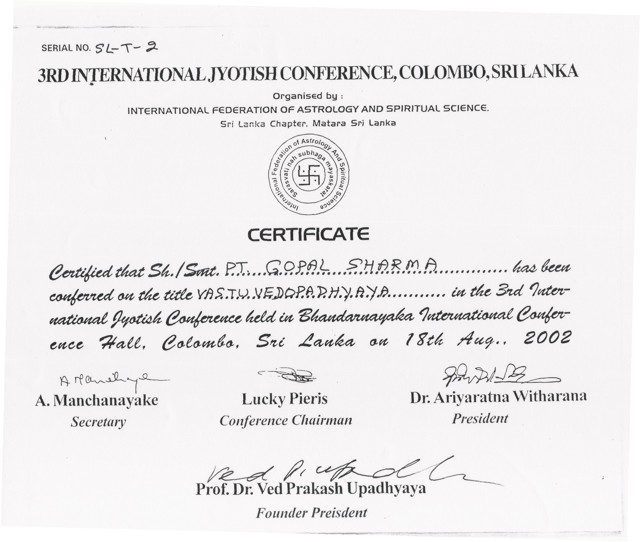 SERIAL NO. SL-T-2
3RD INTERNATIONAL JYOTISH CONFERENCE, COLOMBO, SRI LANKA
Organised by :
INTERNATIONAL FEDERATION OF ASTROLOGY AND SPIRITUAL SCIENCE.
Sri Lanka Chapter. Matara Sri Lanka
International Federation of Astrology And Spiritual Science
Sarasvati nah subhaga mayaskarat
CERTIFICATE
Certified that Sh./Smt. PT. GOPAL SHARMA has been
conferred on the title VASTU VEDOPADHYAYA in the 3rd Inter-
national Jyotish Conference held in Bhandarnayaka International Confer-
ence Hall, Colombo, Sri Lanka on 18th Aug., 2002
A Manchanayake
A. Manchanayake Lucky Pieris Dr. Ariyaratna Witharana
Secretary Conference Chairman President
Ved P. Upadh
Prof. Dr. Ved Prakash Upadhyaya
Founder Preisdent